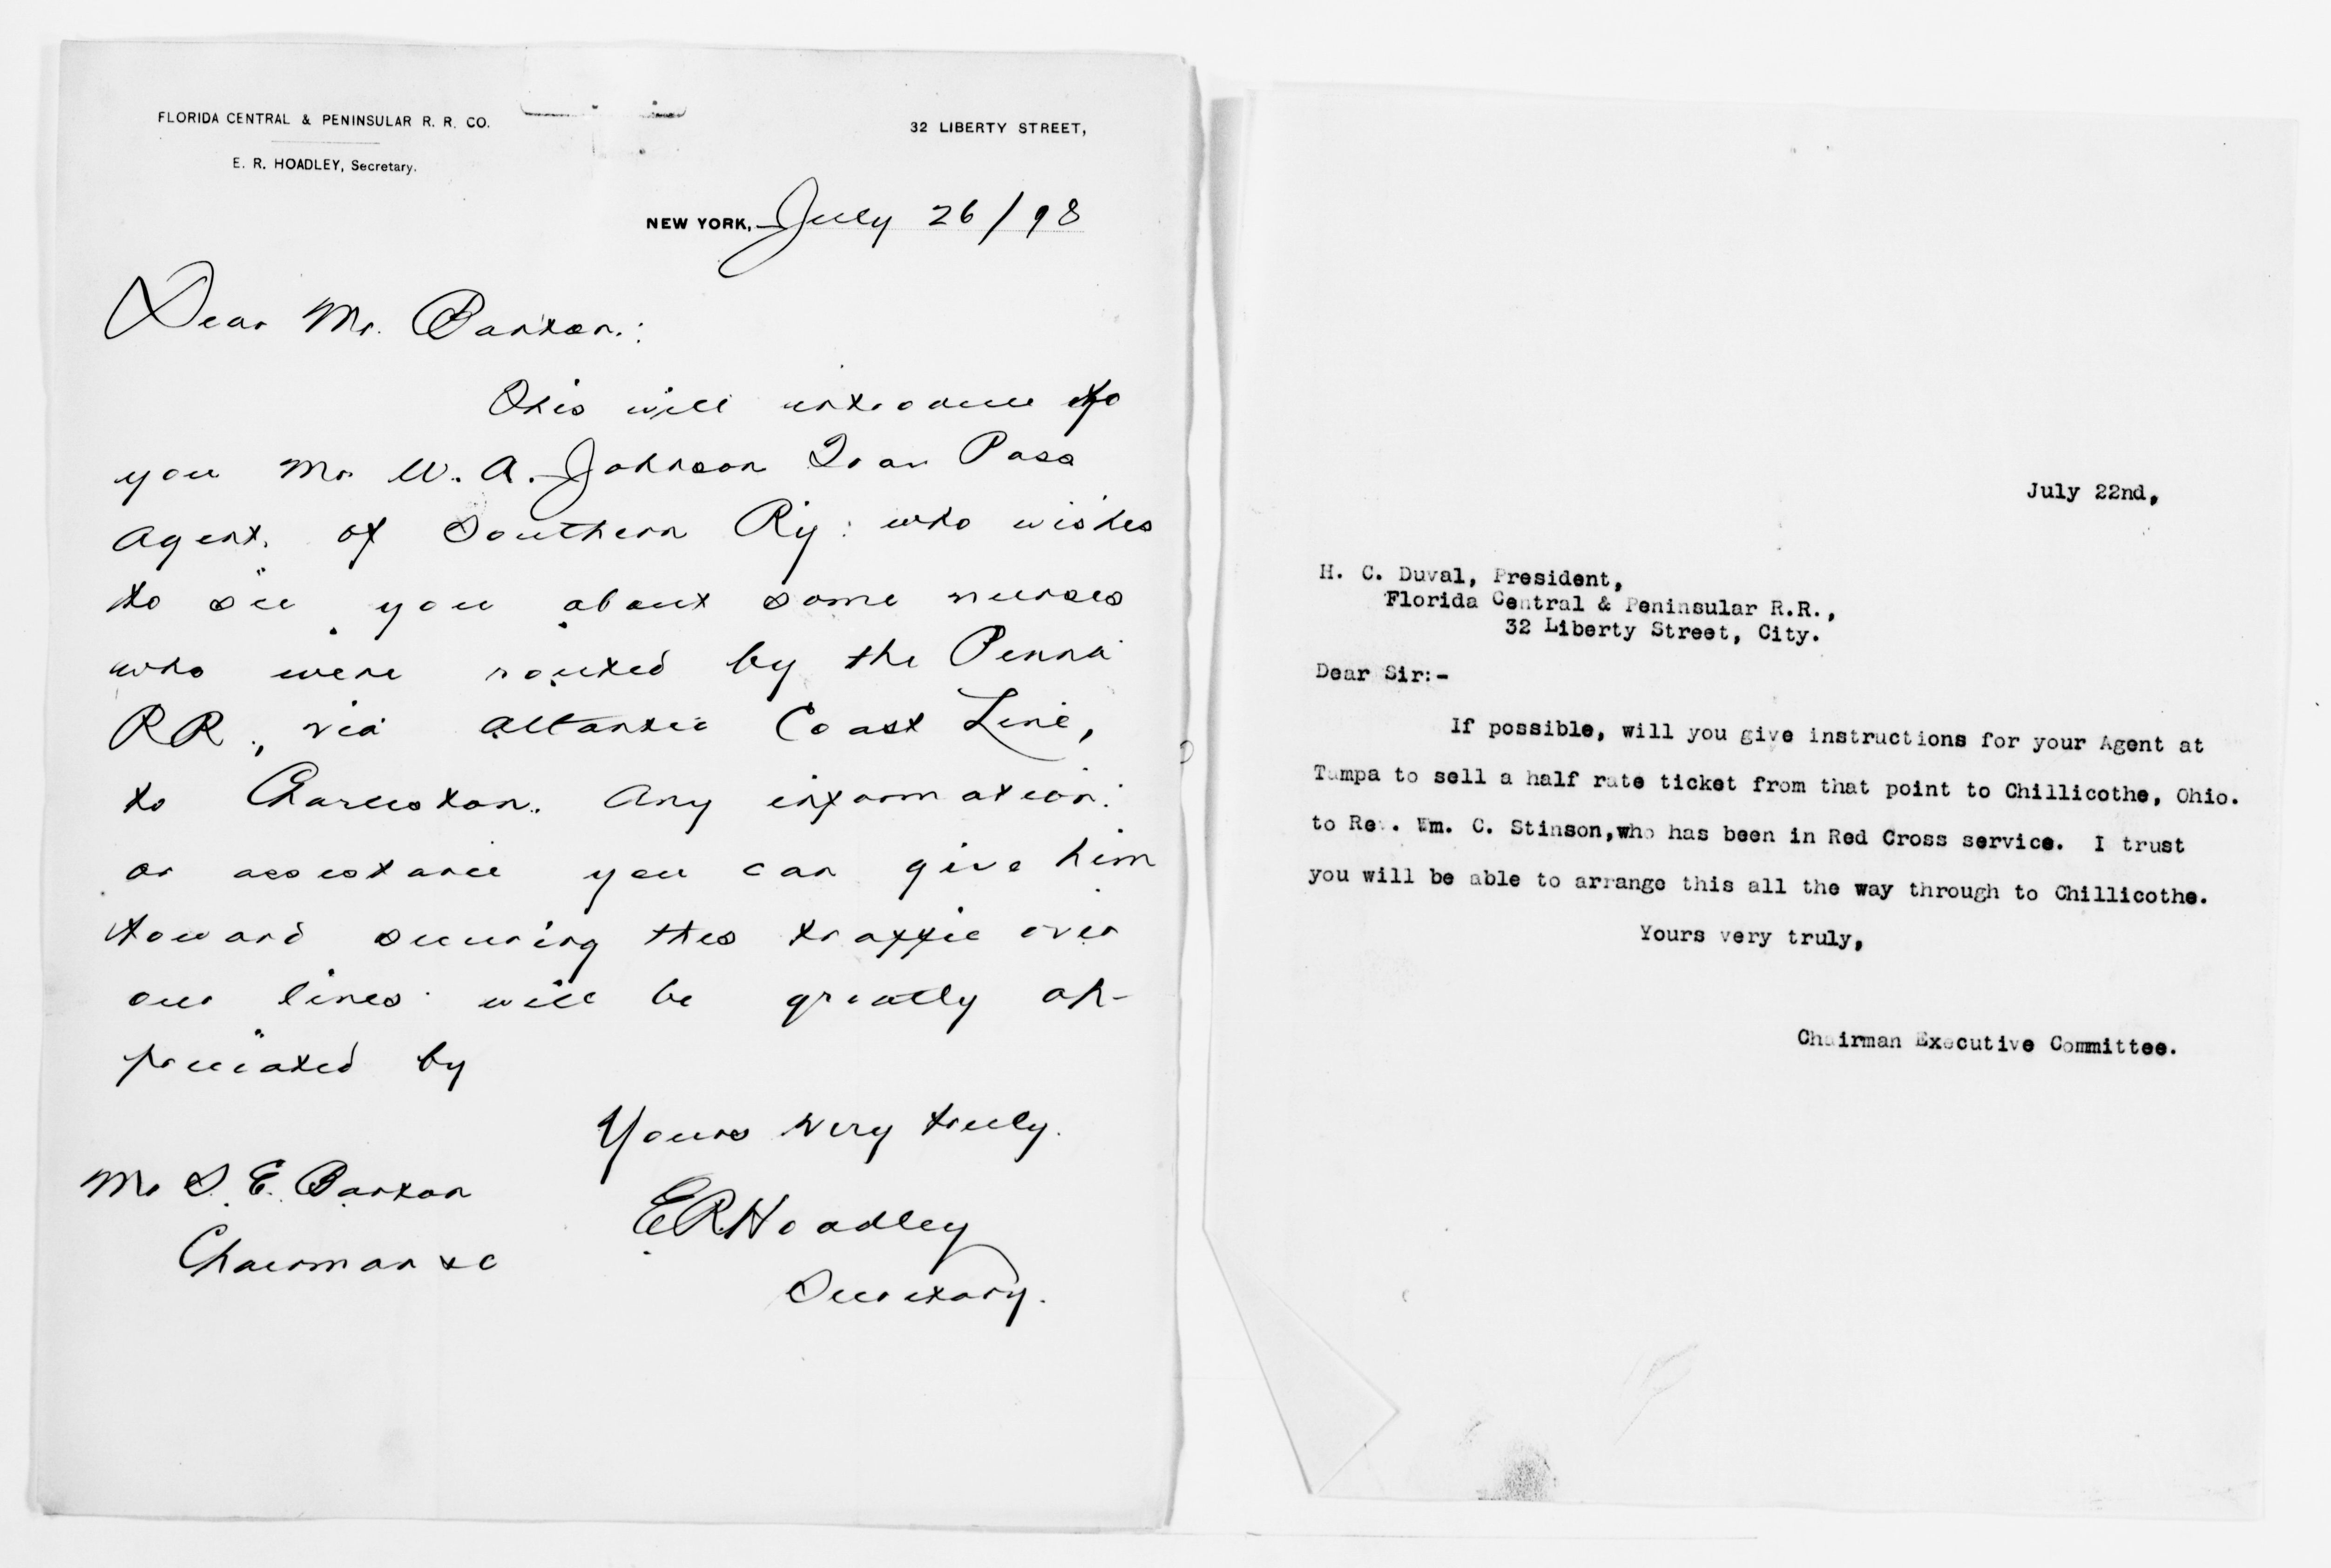 FLORIDA CENTRAL & PENINSULAR R. R. CO.
E. R. HOADLEY, Secretary.
32 LIBERTY STREET,
NEW YORK, July 26/98
Dear Mr. Barton.:
This will introduce to
you Mr W. A. Johnson Trav Pass
Agent. of Southern Ry: who wishes
to see you about some nurses
who were routed by the Penna
RR., via Atlantic Coast Line,
to Charleston. Any information
or assistance you can give him
toward securing this traffic over
our lines will be greatly ap-
preciated by
Yours very truly.
Mr S. E. Barton
Chairman &c
ERHoadley
Secretary.
July 22nd,
H. C. Duval, President,
Florida Central & Peninsular R.R.,
32 Liberty Street, City.
Dear Sir:-
If possible, will you give instructions for your Agent at
Tampa to sell a half rate ticket from that point to Chillicothe, Ohio.
to Rev. Wm. C. Stinson,who has been in Red Cross service. I trust
you will be able to arrange this all the way through to Chillicothe.
Yours very truly,
Chairman Executive Committee.